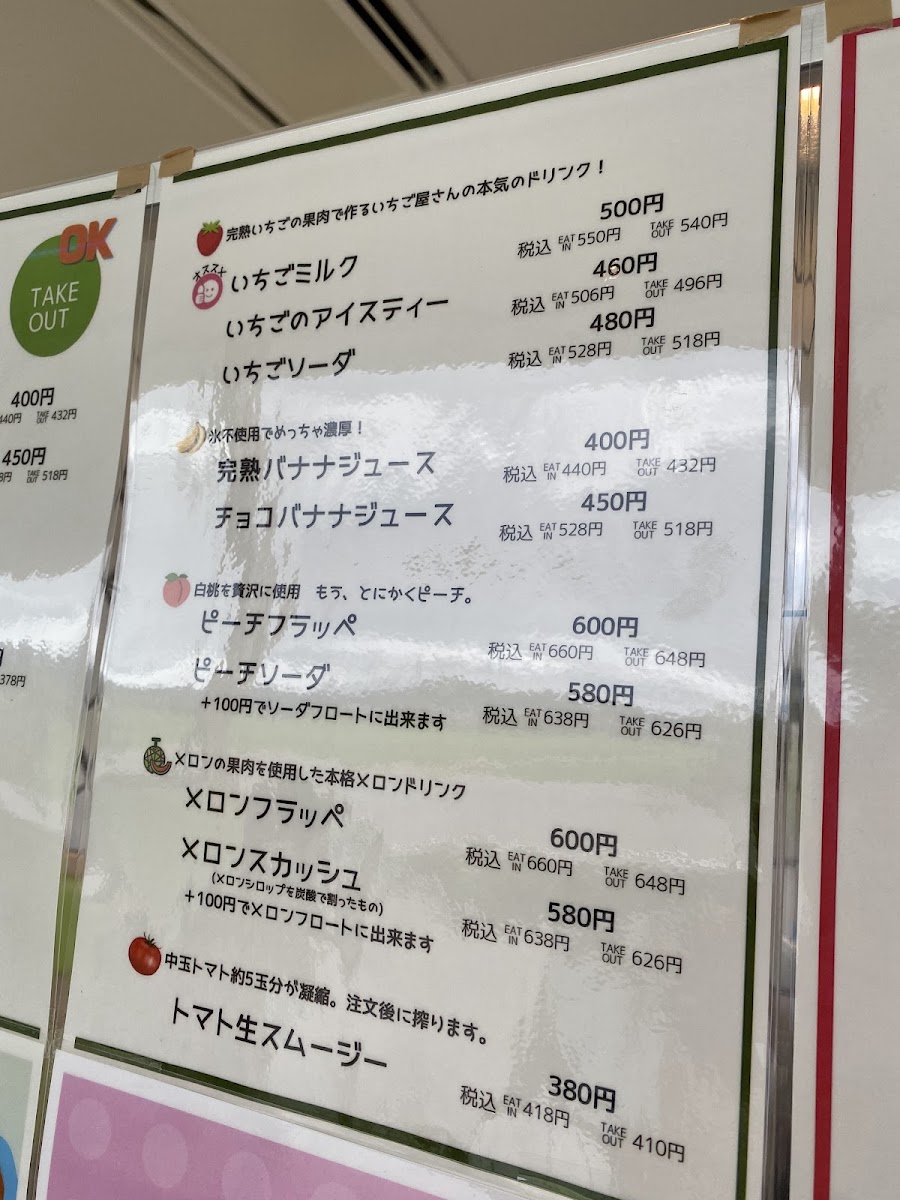 OK
TAKE
OUT
400円
440円 TAKE OUT 432円
450円
TAKE OUT 518円
378円
完熟いちごの果肉で作るいちご屋さんの本気のドリンク！
オススメ
いちごミルク
500円
税込 EAT IN 550円 TAKE OUT 540円
いちごのアイスティー
460円
税込 EAT IN 506円 TAKE OUT 496円
いちごソーダ
480円
税込 EAT IN 528円 TAKE OUT 518円
氷不使用でめっちゃ濃厚！
完熟バナナジュース
400円
税込 EAT IN 440円 TAKE OUT 432円
チョコバナナジュース
450円
税込 EAT IN 528円 TAKE OUT 518円
白桃を贅沢に使用 もう、とにかくピーチ。
ピーチフラッペ
600円
税込 EAT IN 660円 TAKE OUT 648円
ピーチソーダ
580円
税込 EAT IN 638円 TAKE OUT 626円
+100円でソーダフロートに出来ます
メロンの果肉を使用した本格メロンドリンク
メロンフラッペ
600円
税込 EAT IN 660円 TAKE OUT 648円
メロンスカッシュ
(メロンシロップを炭酸で割ったもの)
580円
税込 EAT IN 638円 TAKE OUT 626円
+100円でメロンフロートに出来ます
中玉トマト約5玉分が凝縮。注文後に搾ります。
トマト生スムージー
380円
税込 EAT IN 418円 TAKE OUT 410円